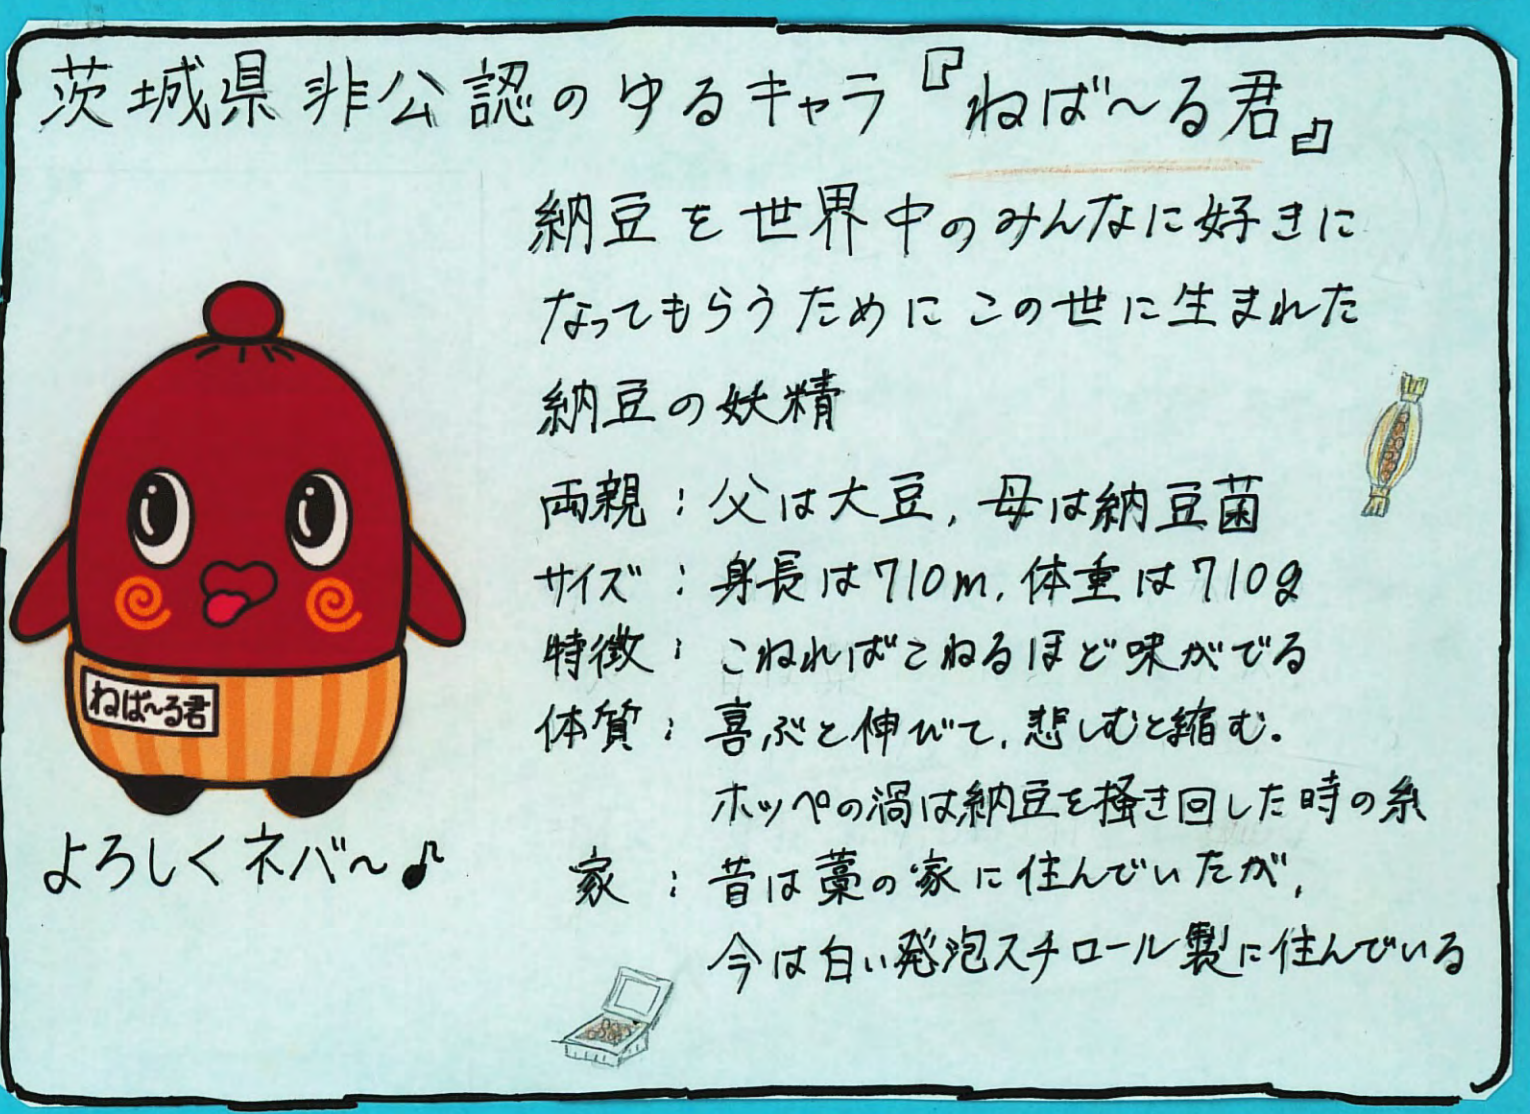 茨城県非公認のゆるキャラ『ねば～る君』
納豆を世界中のみんなに好きに
なってもらうためにこの世に生まれた
納豆の妖精
両親：父は大豆,母は納豆菌
サイズ：身長は710m,体重は710g
特徴：こねればこねるほど味がでる
体質：喜ぶと伸びて,悲しむと縮む.
ホッペの渦は納豆を掻き回した時の糸
家：昔は藁の家に住んでいたが,
今は白い発泡スチロール製に住んでいる
ねば～る君
よろしくネバ～♪